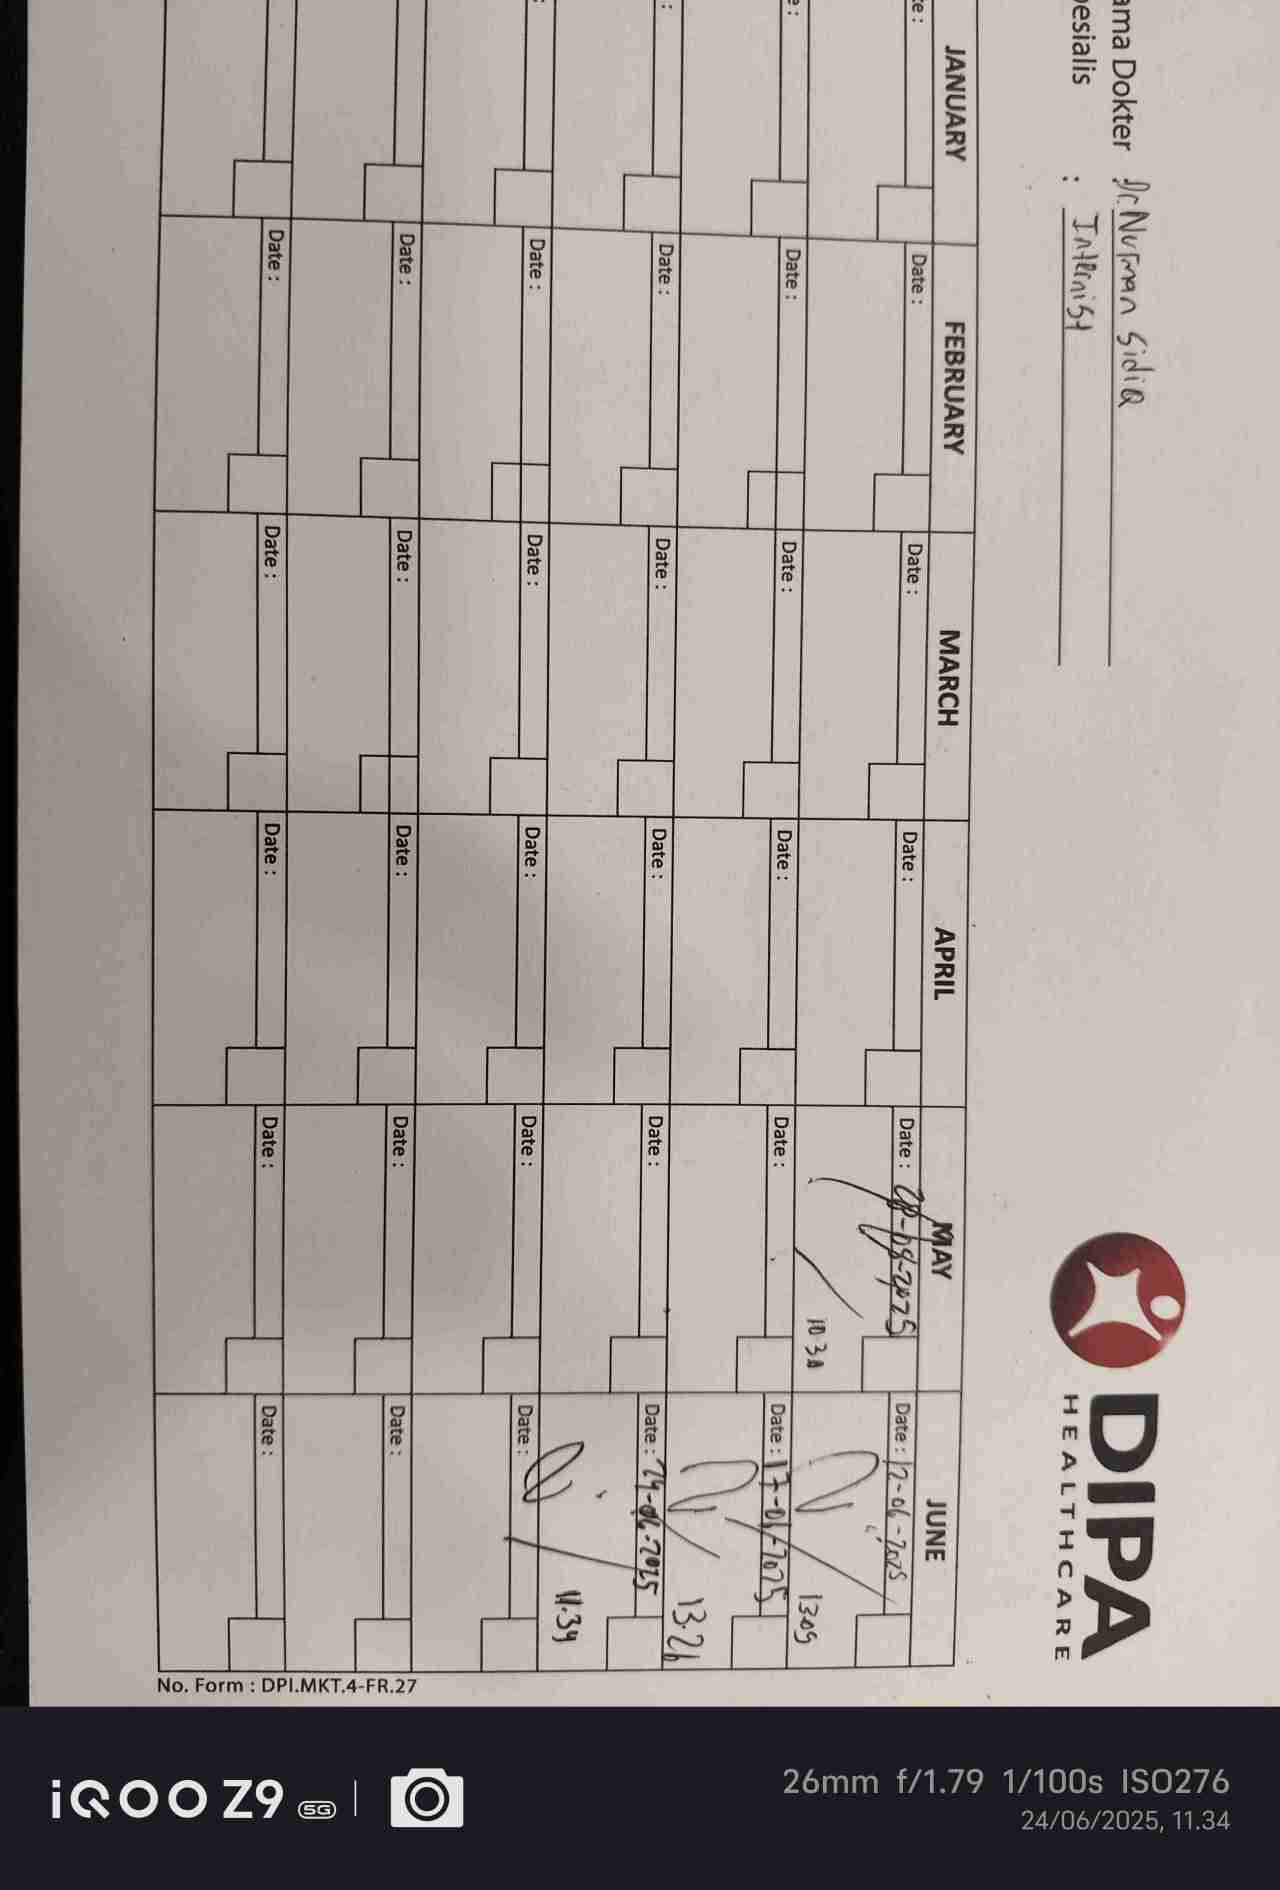 DIPA
HEALTHCARE
ama Dokter Dr. Nurman Sidiq
esialis : Internist
JANUARY FEBRUARY MARCH APRIL MAY JUNE
te : Date : Date : Date : Date : 28-05-2025 Date : 12-06-2025
10.30 13.09
e : Date : Date : Date : Date : Date : 17-06-2025
13.26
: Date : Date : Date : Date : Date : 24-06-2025
11.34
: Date : Date : Date : Date : Date :
Date : Date : Date : Date : Date :
Date : Date : Date : Date : Date :
No. Form : DPI.MKT.4-FR.27
iQOO Z9 5G
26mm f/1.79 1/100s ISO276
24/06/2025, 11.34